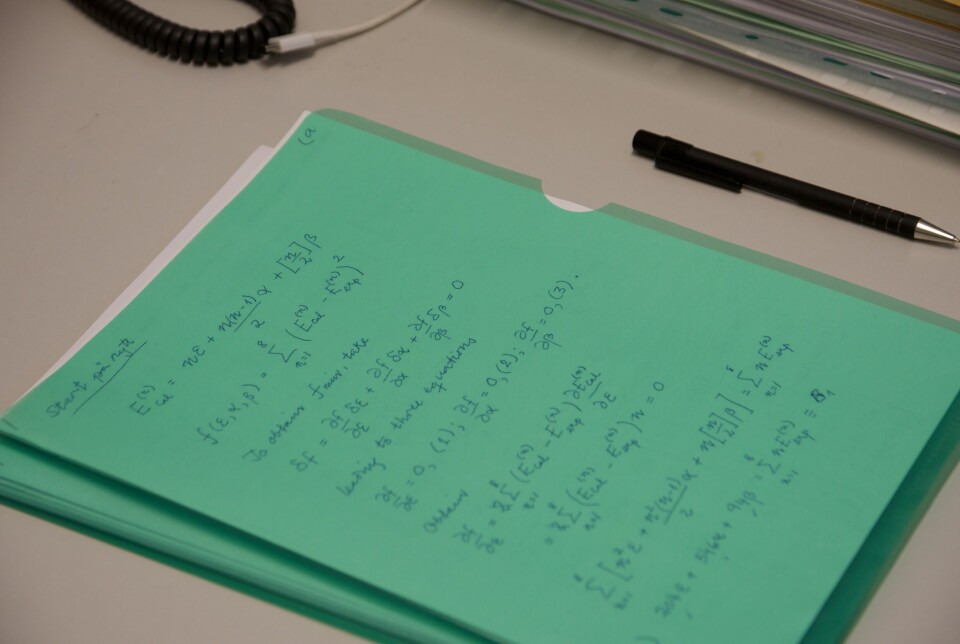 (a
Start
E_cal^(n) = nε + n(n-1)/2 α + [n/2] β
f(ε, α, β) = Σ_{n=1}^{8} (E_cal^(n) - E_exp^(n))^2
To obtain f min, take
δf = ∂f/∂ε δε + ∂f/∂α δα + ∂f/∂β δβ = 0
leading to three equations
∂f/∂ε = 0, (1); ∂f/∂α = 0, (2); ∂f/∂β = 0, (3).
Obtain
∂f/∂ε = 2 Σ_{n=1}^{8} (E_cal^(n) - E_exp^(n)) ∂E_cal^(n)/∂ε
= 2 Σ_{n=1}^{8} (E_cal^(n) - E_exp^(n)) n = 0
Σ_{n=1}^{8} [n²ε + n²(n-1)/2 α + n[n/2] β] = Σ_{n=1}^{8} n E_exp^(n)
204ε + 546α + 94β = Σ_{n=1}^{8} n E_exp^(n) = B_1